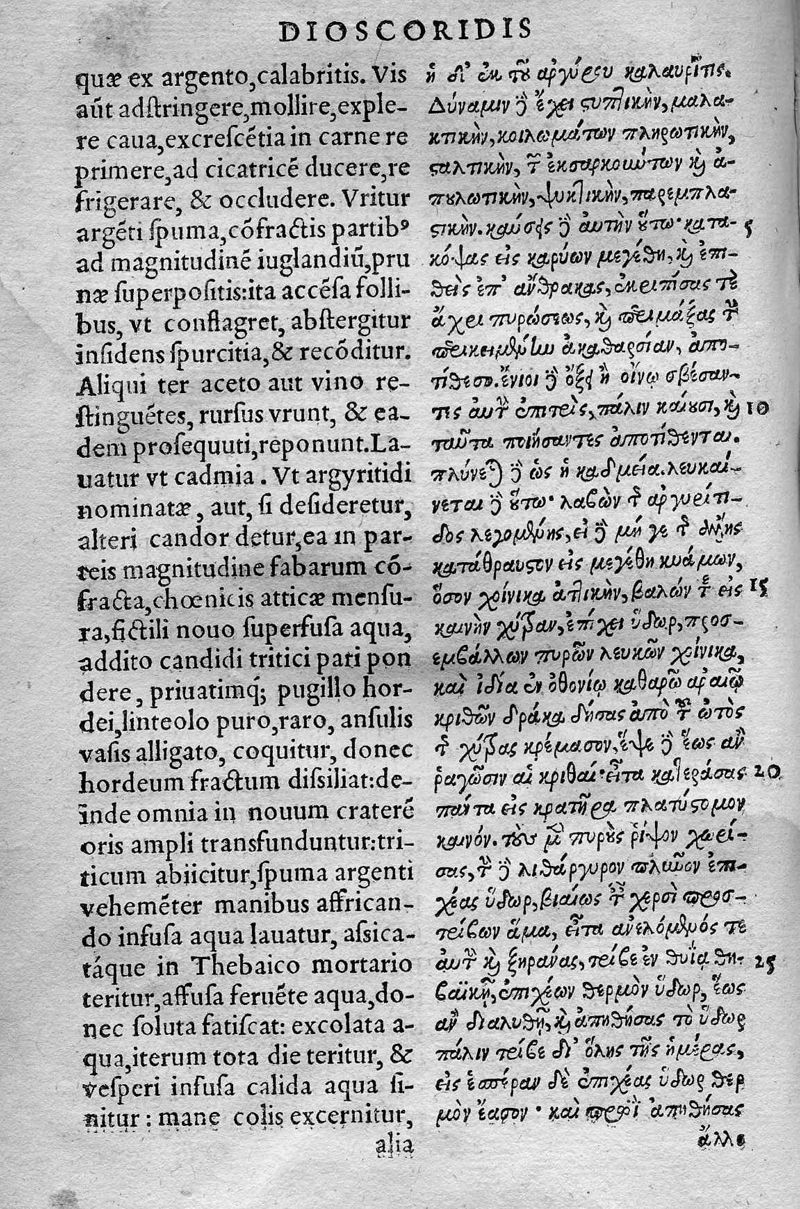 DIOSCORIDIS
quæ ex argento, calabritis. Vis
aūt adſtringere, mollire, exple-
re caua, excreſcētia in carne re
primere, ad cicatricē ducere, re
frigerare, & occludere. Vritur
argēti ſpuma, cōfractis partibꝰ
ad magnitudinē iuglandiū, pru
næ ſuperpoſitis: ita accēſa folli-
bus, vt conflagret, abſtergitur
inſidens ſpurcitia, & recōditur.
Aliqui ter aceto aut vino re-
ſtinguētes, rurſus vrunt, & ea-
dem proſequuti, reponunt. La-
uatur vt cadmia. Vt argyritidi
nominatæ, aut, ſi deſideretur,
alteri candor detur, ea in par-
teis magnitudine fabarum cō-
fracta, chœnicis atticæ menſu-
ra, fictili nouo ſuperfuſa aqua,
addito candidi tritici pari pon
dere, priuatimq; pugillo hor-
dei, linteolo puro, raro, anſulis
vaſis alligato, coquitur, donec
hordeum fractum diſsiliat: de-
inde omnia in nouum craterē
oris ampli transfunduntur: tri-
ticum abiicitur, ſpuma argenti
vehemēter manibus affrican-
do infuſa aqua lauatur, aſsica-
táque in Thebaico mortario
teritur, affuſa feruēte aqua, do-
nec ſoluta fatiſcat: excolata a-
qua, iterum tota die teritur, &
veſperi infuſa calida aqua ſi-
nitur: mane colis excernitur,
alia
ἡ δ' ἐκ τοῦ ἀργύρου καλαυρῖτις.
Δύναμιν δὲ ἔχει στυπτικὴν, μαλα-
κτικὴν, κοιλωμάτων πληρωτικὴν,
σταλτικὴν, τ ἐκσαρκούντων καὶ ἀ-
πουλωτικὴν, ψυκτικὴν, παρεμπλα-
στικὴν. καύσεις δὲ αὐτὴν οὕτω· κατα- 5
κόψας εἰς καρύων μεγέθη, καὶ ἐπι-
θεὶς ἐπ' ἄνθρακας, ἐκριπίσας τε
ἄχρι πυρώσεως, καὶ περιμάξας τὴν
περικειμένην ἀκαθαρσίαν, ἀπο-
τίθεσο. ἔνιοι δὲ ὄξει ἢ οἴνῳ σβέσαν-
τες αὐτὴν ἐπιτρὶς, πάλιν καίουσι, καὶ 10
ταῦτα ποιήσαντες ἀποτίθενται.
πλύνεται δὲ ὡς ἡ καδμεία. λευκαί-
νεται δὲ οὕτω· λαβὼν τῆς ἀργυρίτι-
δος λεγομένης, εἰ δὲ μή γε τῆς ἄλλης
κατάθραυστον εἰς μεγέθη κυάμων,
ὅσον χοίνικα ἀττικὴν, βαλών τε εἰς 15
καινὴν χύτραν, ἐπίχει ὕδωρ, προσ-
εμβάλλων πυρῶν λευκῶν χοίνικα,
καὶ ἰδίᾳ ἐν ὀθονίῳ καθαρῷ ἀραιῷ
κριθῶν δράκα δήσας ἀπὸ τοῦ ὠτὸς
τῆς χύτρας κρέμασον, ἕψε δὲ ἕως ἂν
ῥαγῶσιν αἱ κριθαί· εἶτα κατεράσας 20
πάντα εἰς κρατῆρα πλατύστομον
καινόν. τοὺς μὲν πυροὺς ῥίψον χωρί-
σας, τὴν δὲ λιθάργυρον πλῦνον ἐπι-
χέας ὕδωρ, βιαίως ταῖς χερσὶ προσ-
τρίβων ἅμα, εἶτα ἀνελόμενός τε
αὐτὴν καὶ ξηράνας, τρῖβε ἐν θυΐᾳ Θη- 25
βαϊκῇ, ἐπιχέων θερμὸν ὕδωρ, ἕως
ἂν διαλυθῇ, καὶ ἀπηθήσας τὸ ὕδωρ
πάλιν τρῖβε δι' ὅλης τῆς ἡμέρας,
εἰς ἑσπέραν δὲ ἐπιχέας ὕδωρ θερ
μὸν ἔασον· καὶ πρωῒ ἀπηθήσας
ἄλλο